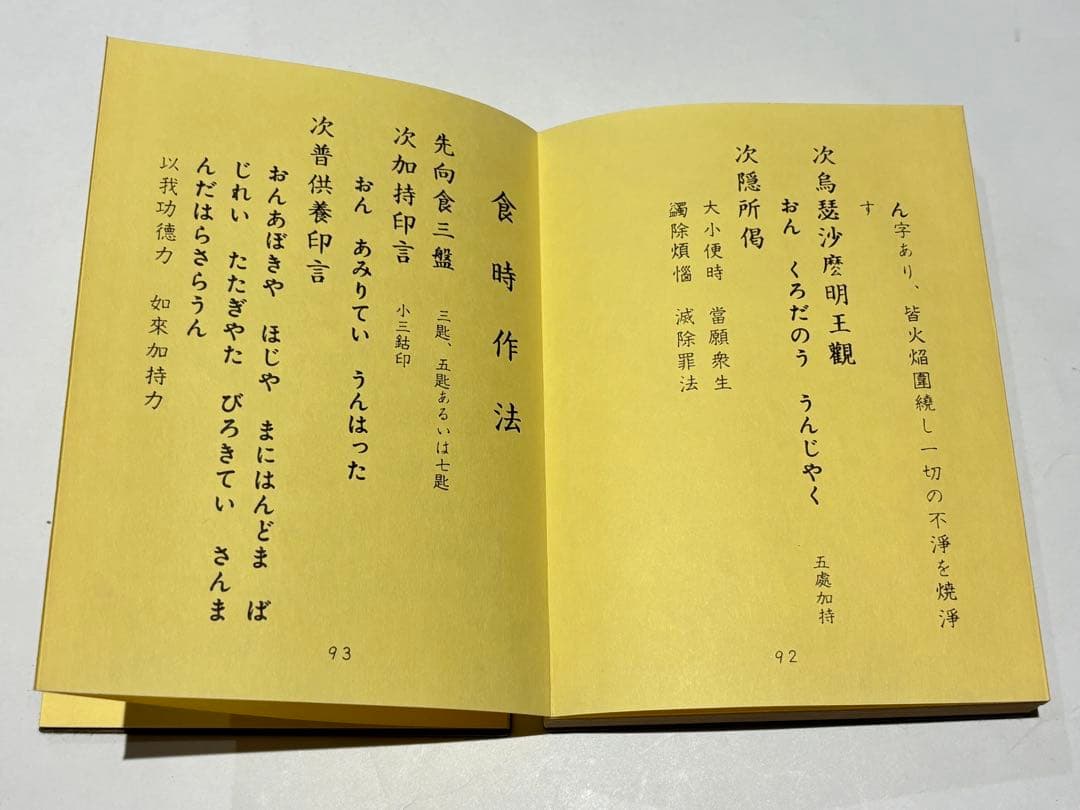 ん字あり、皆火焔圍繞し一切の不淨を燒淨
す
次烏瑟沙麽明王觀
おん　くろだのう　うんじやく　五處加持
次隠所偈
大小便時　當願衆生
蠲除煩惱　滅除罪法
92
食時作法
先向食三盤　三匙、五匙あるいは七匙
次加持印言　小三鈷印
おん　あみりてい　うんはった
次普供養印言
おんあぼきや　ほじや　まにはんどま　ば
じれい　たたぎやた　びろきてい　さんま
んだはらさらうん
以我功德力　如來加持力
93